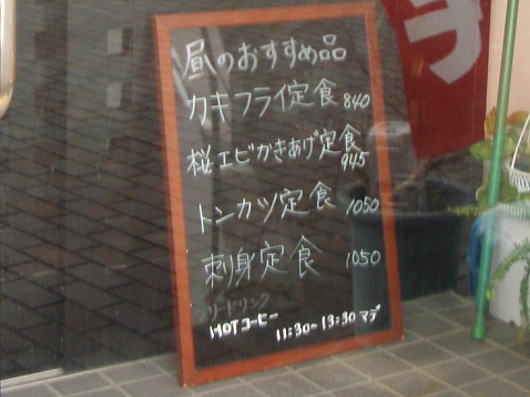 昼のおすすめ品
カキフライ定食 840
桜エビかきあげ定食 945
トンカツ定食 1050
刺身定食 1050
フリードリンク
HOTコーヒー
11:30~13:30マデ